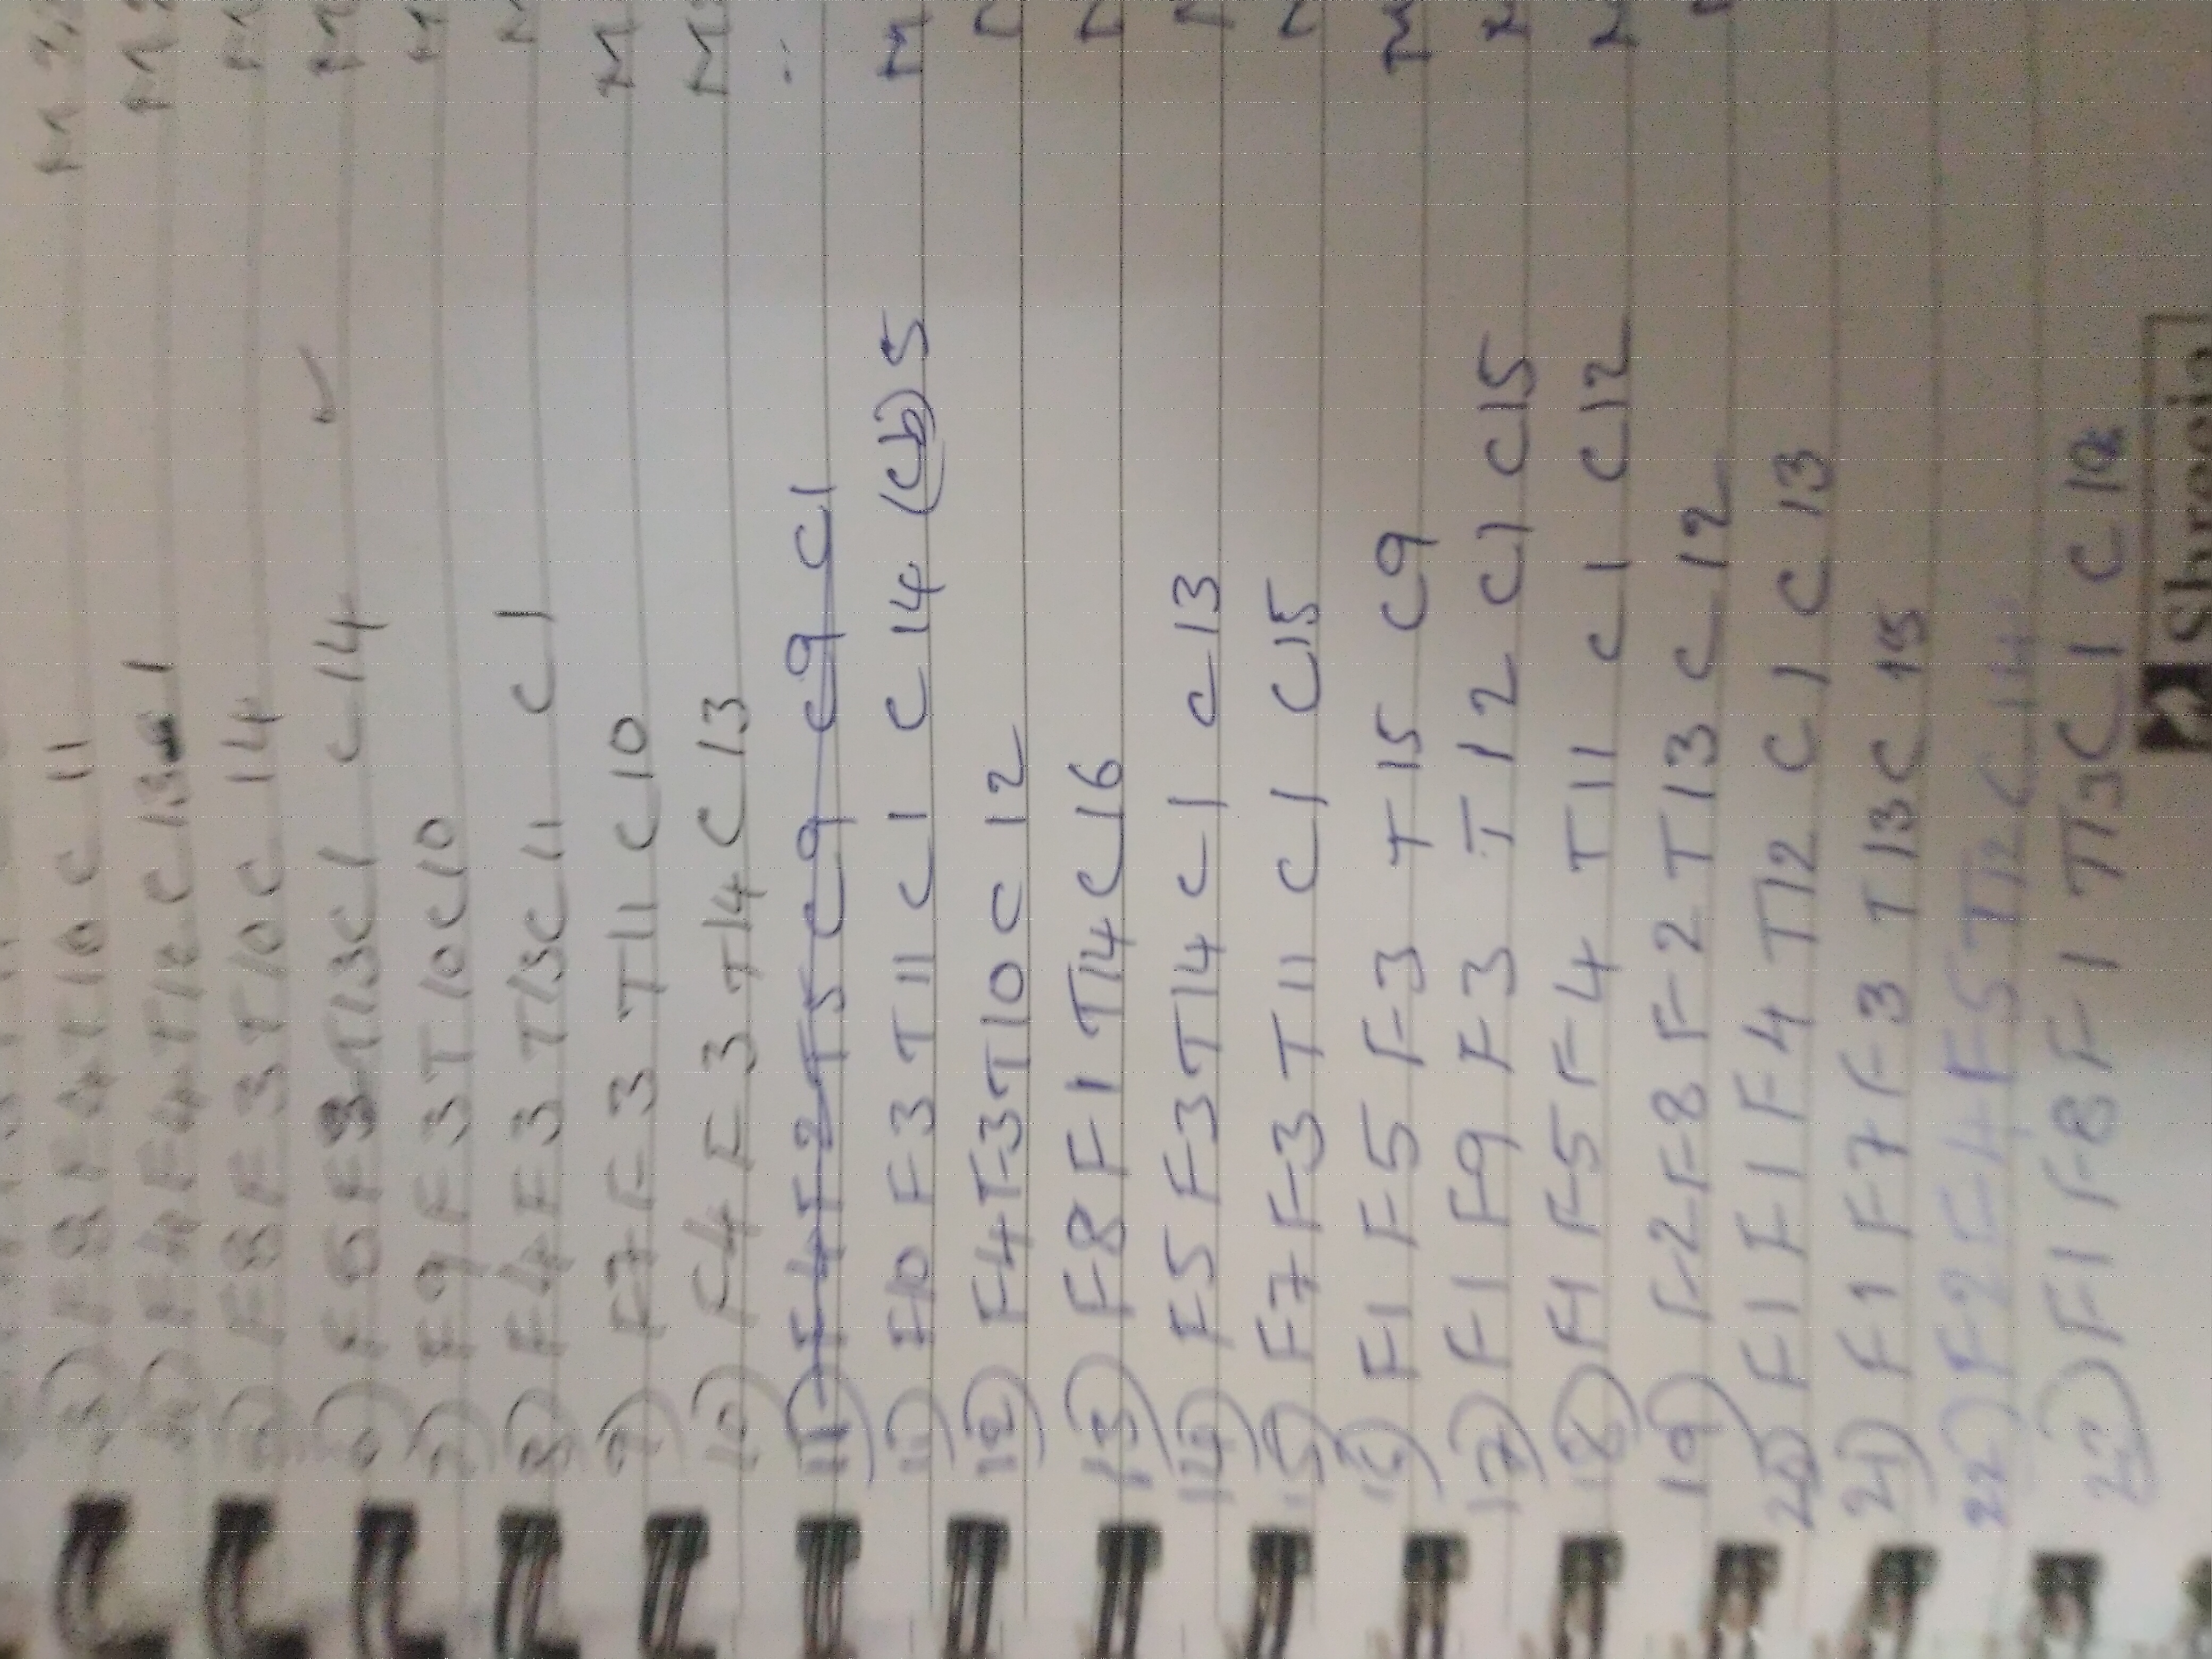 3) F8 F4 T10 C 11
4) F4 F4 T12 C 13 1
5) F8 F 3 T10C 14
6) F5 F3 T13C1 C14 ✓
7) F9 F 3 T10C10
8) F4 F3 T13C11 C1
9) F7 F 3 T11 C10
10) F4 F 3 T14 C 13
11) F4 F2 T5 C9 C9 C1
11) F10 F3 T11 C1 C14 (Cb) 5
12) F4 F3 T10 C 12
13) F8 F1 T14 C16
14) F5 F3 T14 C1 C13
15) F7 F3 T11 C1 C15
16) F1 F5 F3 T15 C9
17) F1 F9 F3 T12 C1 C15
18) F1 F5 F4 T11 C1 C12
19) F2 F8 F2 T13 C12
20) F1 F1 F4 T12 C1 C13
21) F1 F7 F3 T13 C15
22) F2 F4 F5 T12 C14
23) F1 F8 F1 T13 C1 C 12